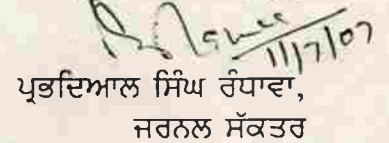 11/7/07
ਪ੍ਰਭਦਿਆਲ ਸਿੰਘ ਰੰਧਾਵਾ,
ਜਰਨਲ ਸੱਕਤਰ